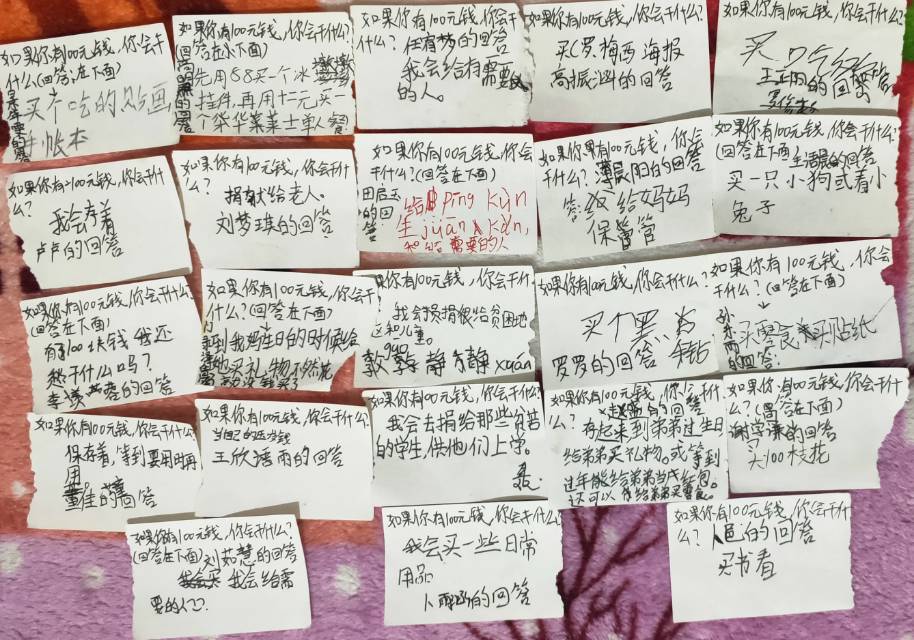 如果你有100元钱,你会干
什么(回答在下面)
买个吃的贴画
手帐本
如果你有100元钱,你会干什么?
(回答在下面)
先用88买一个冰墩墩
挂件,再用十二元买一
个华莱士单人餐
如果你有100元钱,你会干
什么?
的回答
我会给有需要
的人。
如果你有100元钱,你会干什么?
买C罗梅西海报
的回答
如果你有100元钱,你会干什么?
买
的回答
如果你有100元钱,你会干什
么?
我会存着
卢卢的回答
如果你有100元钱,你会干什
么?
捐献给老人。
刘梦琪的回答
如果你有100元钱,你会干
什么?(回答在下面)
的回答
给 pīng kùn
生 juān kǎn,
和给需要的人
如果你有100元钱,你会干
什么?薄晨阳的回答
答:
给妈妈
保管
如果你有100元钱,你会干什么?
(回答在下面)
的回答
买一只小狗或看小
兔子
如果你有100元钱,你会干什么?
(回答在下面)
有了100块钱我还
愁干什么吗?
的回答
如果你有100元钱,你会干
什么?(回答在下面)
到我妈生日的时候给
她买礼物,不然
如果你有100元钱,你会干什么?
我会捐给贫困地
区和儿童。
静 xuán
如果你有100元钱,你会干什么?
买个黑
罗罗的回答 钻
如果你有100元钱,你会
干什么?(回答在下面)
买零食 买贴纸
的回答:
如果你有100元钱,你会干什么?
保存着,等到要用时再
用。
董佳的回答
如果你有100元钱,你会干什么?
当自己的压岁钱
王欣语雨的回答
如果你有100元钱,你会干什么?
我会去捐给那些贫苦
的学生,供他们上学。
如果你有100元钱,你会干什
么?
的回答
存起来到弟弟过生日
给弟弟买礼物。或等到
过年能给弟弟当成红包。
还可以给弟弟买零食。
如果你有100元钱,你会干什
么?(回答在下面)
的回答
头100枝花
如果你有100元钱,你会干什么?
(回答在下面)刘茹慧的回答
我会给需
要的人
如果你有100元钱,你会干什么?
我会买一些日常
用品
的回答
如果你有100元钱,你会干什
么?
的回答
买书看